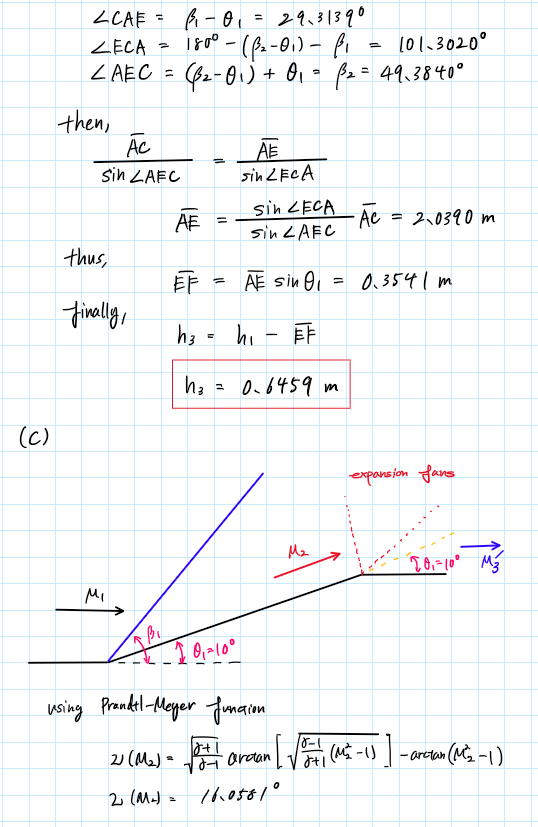 ∠CAE = β₁ - θ₁ = 29.3139°
∠ECA = 180° - (β₂-θ₁) - β₁ = 101.3020°
∠AEC = (β₂-θ₁) + θ₁ = β₂ = 49.3840°
then,
A̅C̅ / sin∠AEC = A̅E̅ / sin∠ECA
A̅E̅ = (sin∠ECA / sin∠AEC) A̅C̅ = 2.0390 m
thus,
E̅F̅ = A̅E̅ sinθ₁ = 0.3541 m
finally,
h₃ = h₁ - E̅F̅
h₃ = 0.6459 m
(C)
expansion fans
M₂
θ₁=10°
M₃'
M₁
β₁
θ₁=10°
using Prandtl-Meyer function
ν(M₂) = √((γ+1)/(γ-1)) arctan[√((γ-1)/(γ+1) (M₂²-1))] - arctan(M₂²-1)
ν(M₂) = 16.0581°